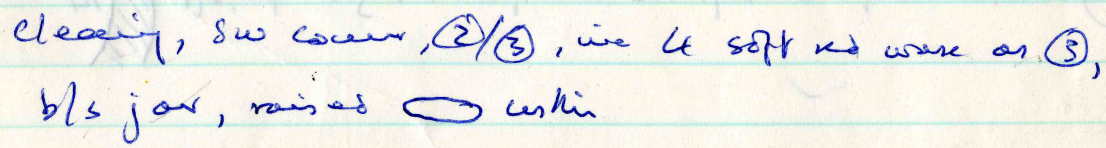 Cleaning, SW corner, ②/③, inc LE soft red ware as ③,
b/s jar, raised within